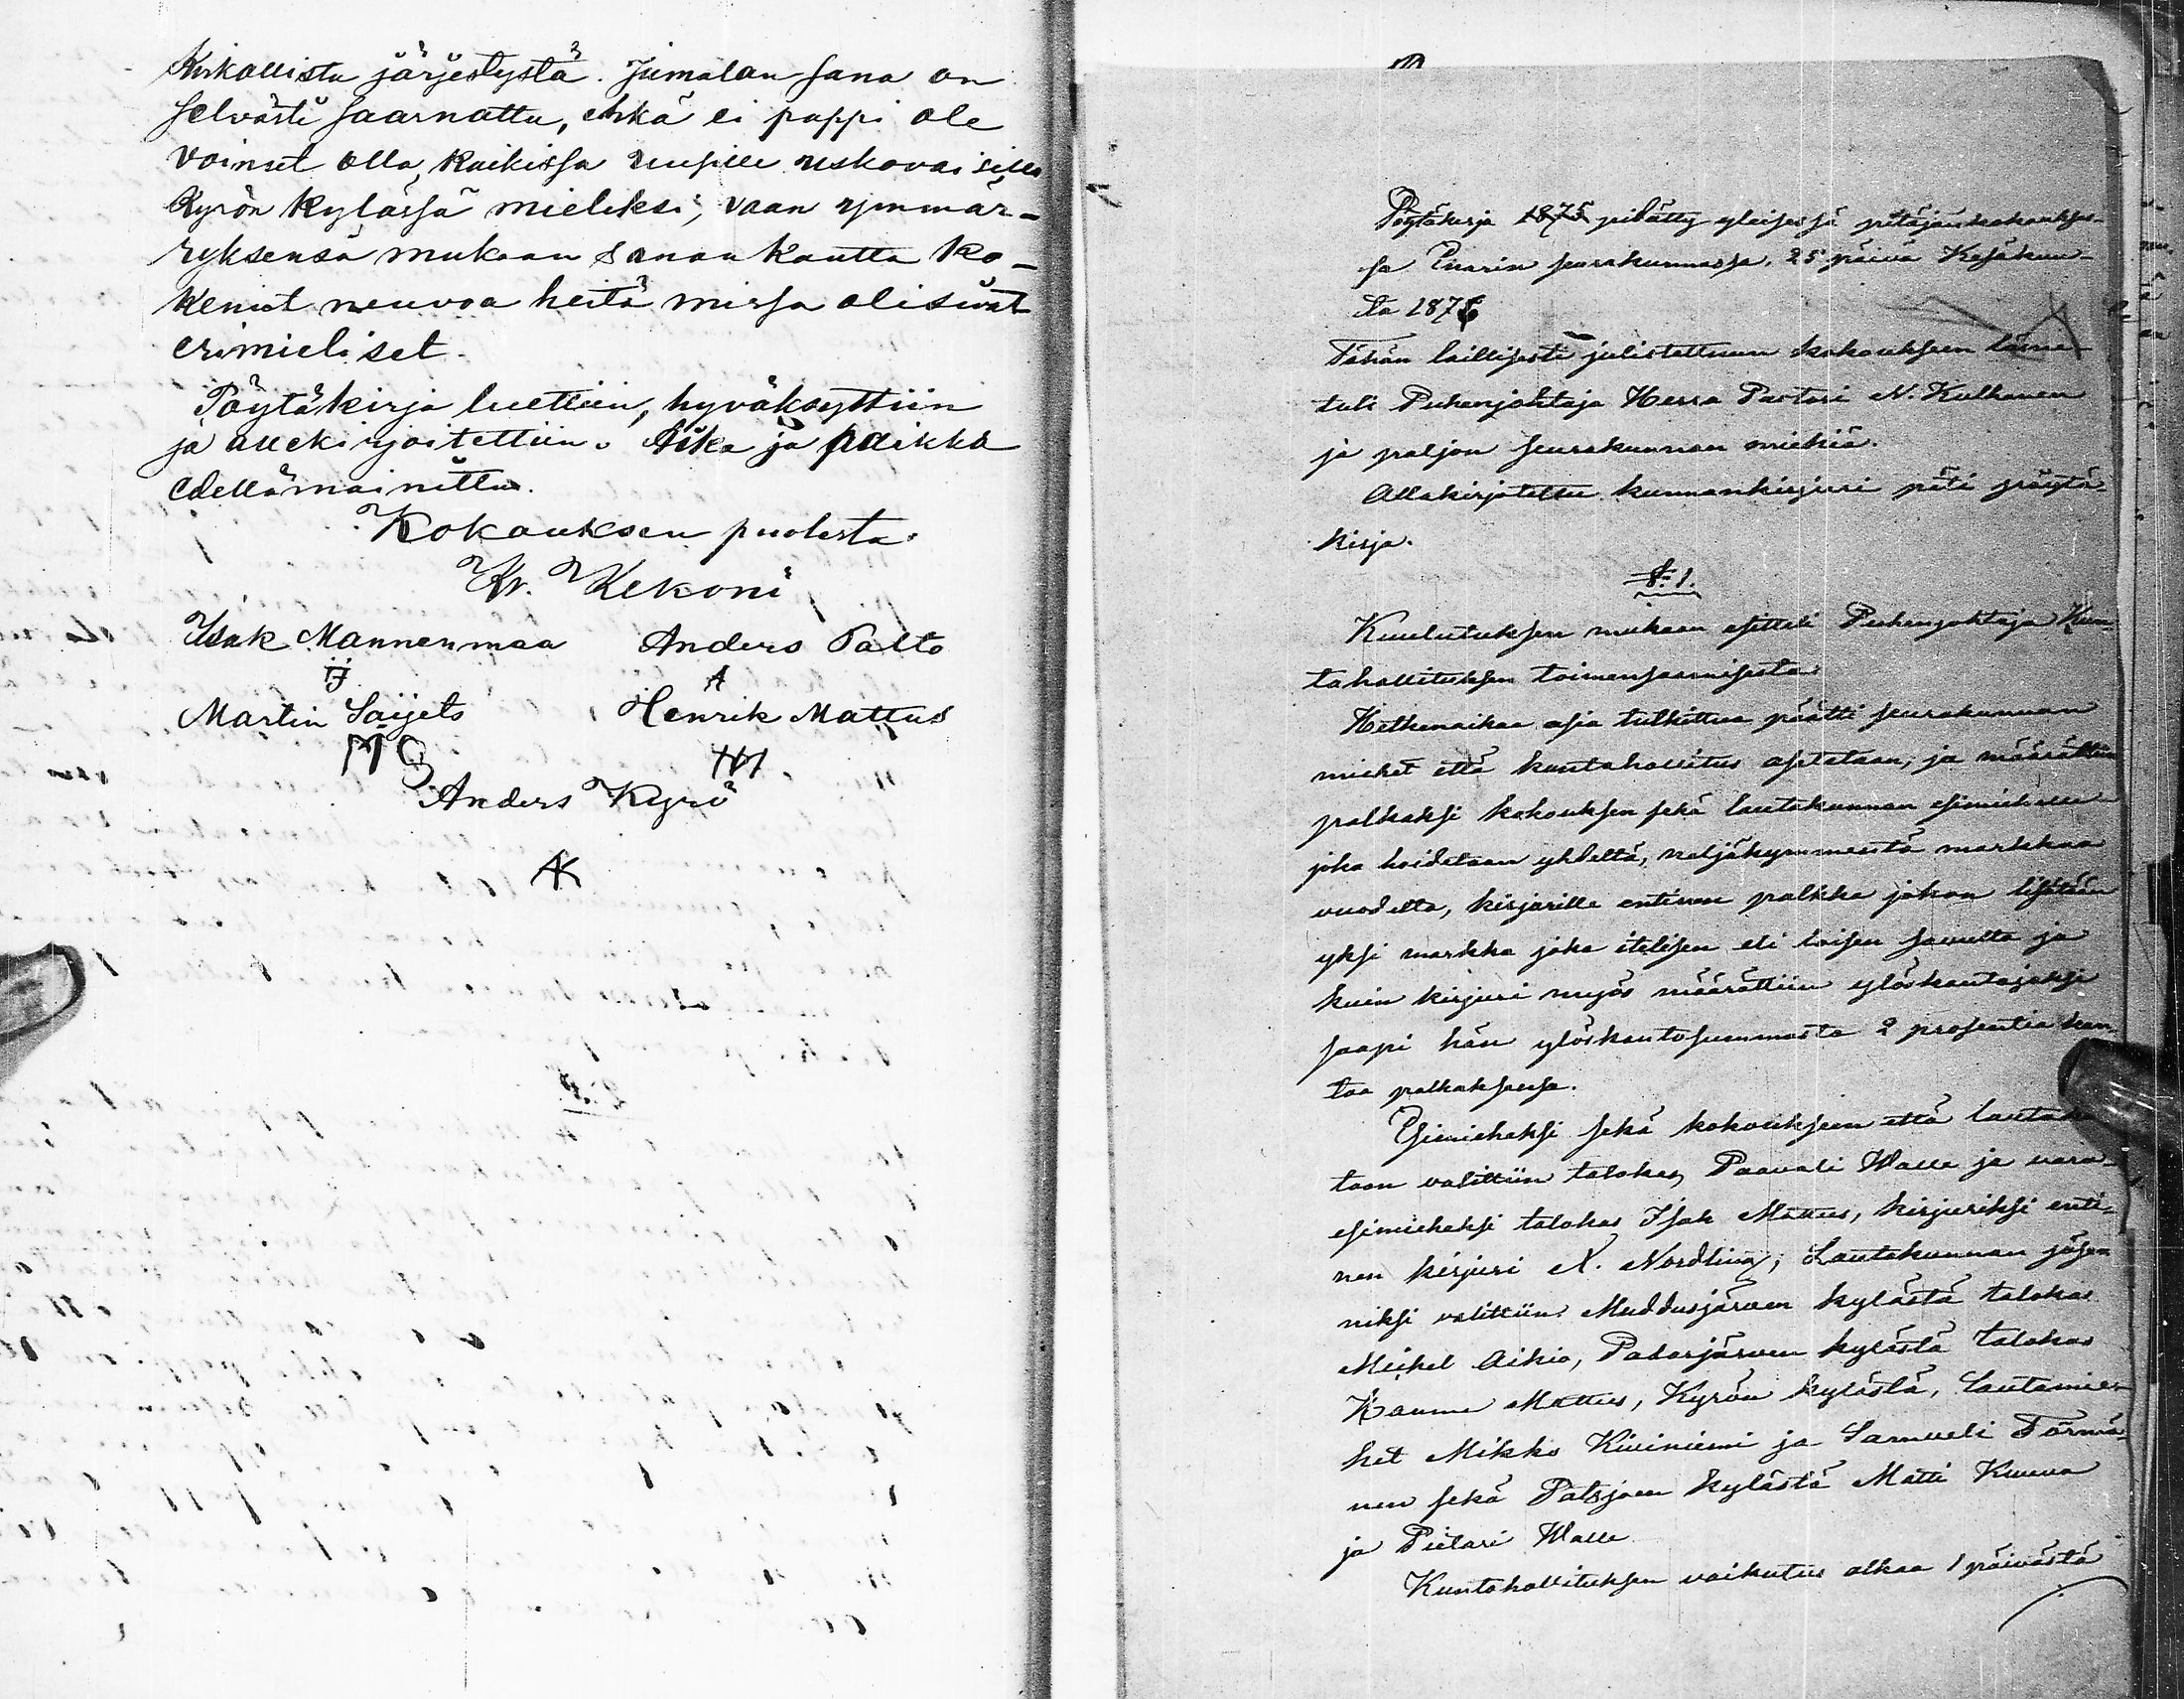 Kirkollista järjestystä. Jumalan sana on
selvästi saarnattu, ehkä ei pappi ole
voinut olla kaikissa uusille uskovaisille
Kyrön kylässä mieliksi, vaan ymmär-
ryksensä mukaan sanan kautta ko-
kenut neuvoa heitä missä olisivat
erimieliset.
Pöytäkirja luettiin, hyväksyttiin
ja allekirjoitettiin. Aika ja paikka
edellämainittu.
Kokouksen puolesta.
Kr. Kekoni
Isak Mannermaa Anders Palto
IJ A
Martin Saijets, Henrik Mattus
MS HM
Anders Kyrö
AK
Pöytäkirja 1875 pidätty yleisessä pitäjänkokoukses-
sa Enarin seurakunnassa, 25 päivä Kesäkuu-
ta 1876
Tähän laillisesti julistettuun kokoukseen
tuli Puhenjohtaja Herra Pastori N. Kulhanen
ja paljon seurakunnan miehiä.
Allakirjotettu kunnankirjuri piti pöytä-
kirja.
§: 1.
Kuulutuksen mukaan esitteli Puhenjohtaja Kun-
tahallituksen toimensaamisesta.
Hetkenaikaa asia tutkittua päätti seurakunnan
miehet että kuntahallitus asetetaan, ja määrättiin
palkaksi kokouksen sekä lautakunnan esimiehelle
joka hoidetaan yhdeltä, neljäkymmentä markkaa
vuodelta, kirjurille entinen palkka johon lisätään
yksi markka joka itelisen eli loisen savulta ja
kuin kirjuri myös määrättiin ylöskantajaksi
saapi hän ylöskantosummasta 2 prosentia kan-
taa palkaksensa.
Esimieheksi sekä kokoukseen että lautakun
taan valittiin talokas Paavali Walle ja vara-
esimieheksi talokas Isak Mattus, kirjuriksi enti-
nen kirjuri N. Nordling, Lautakunnan jäse-
niksi valittiin Muddusjärven kylästä talokas
Mickel Aikio, Padarjärven kylästä talokas
Kaume Mattus, Kyrön kylästä, Lautamie-
het Mikko Kiviniemi ja Samueli Törmä-
nen sekä Patsjoen kylästä Matti Kuuva
ja Pietari Walle
Kuntahallituksen vaikutus alkaa 1 päivästä